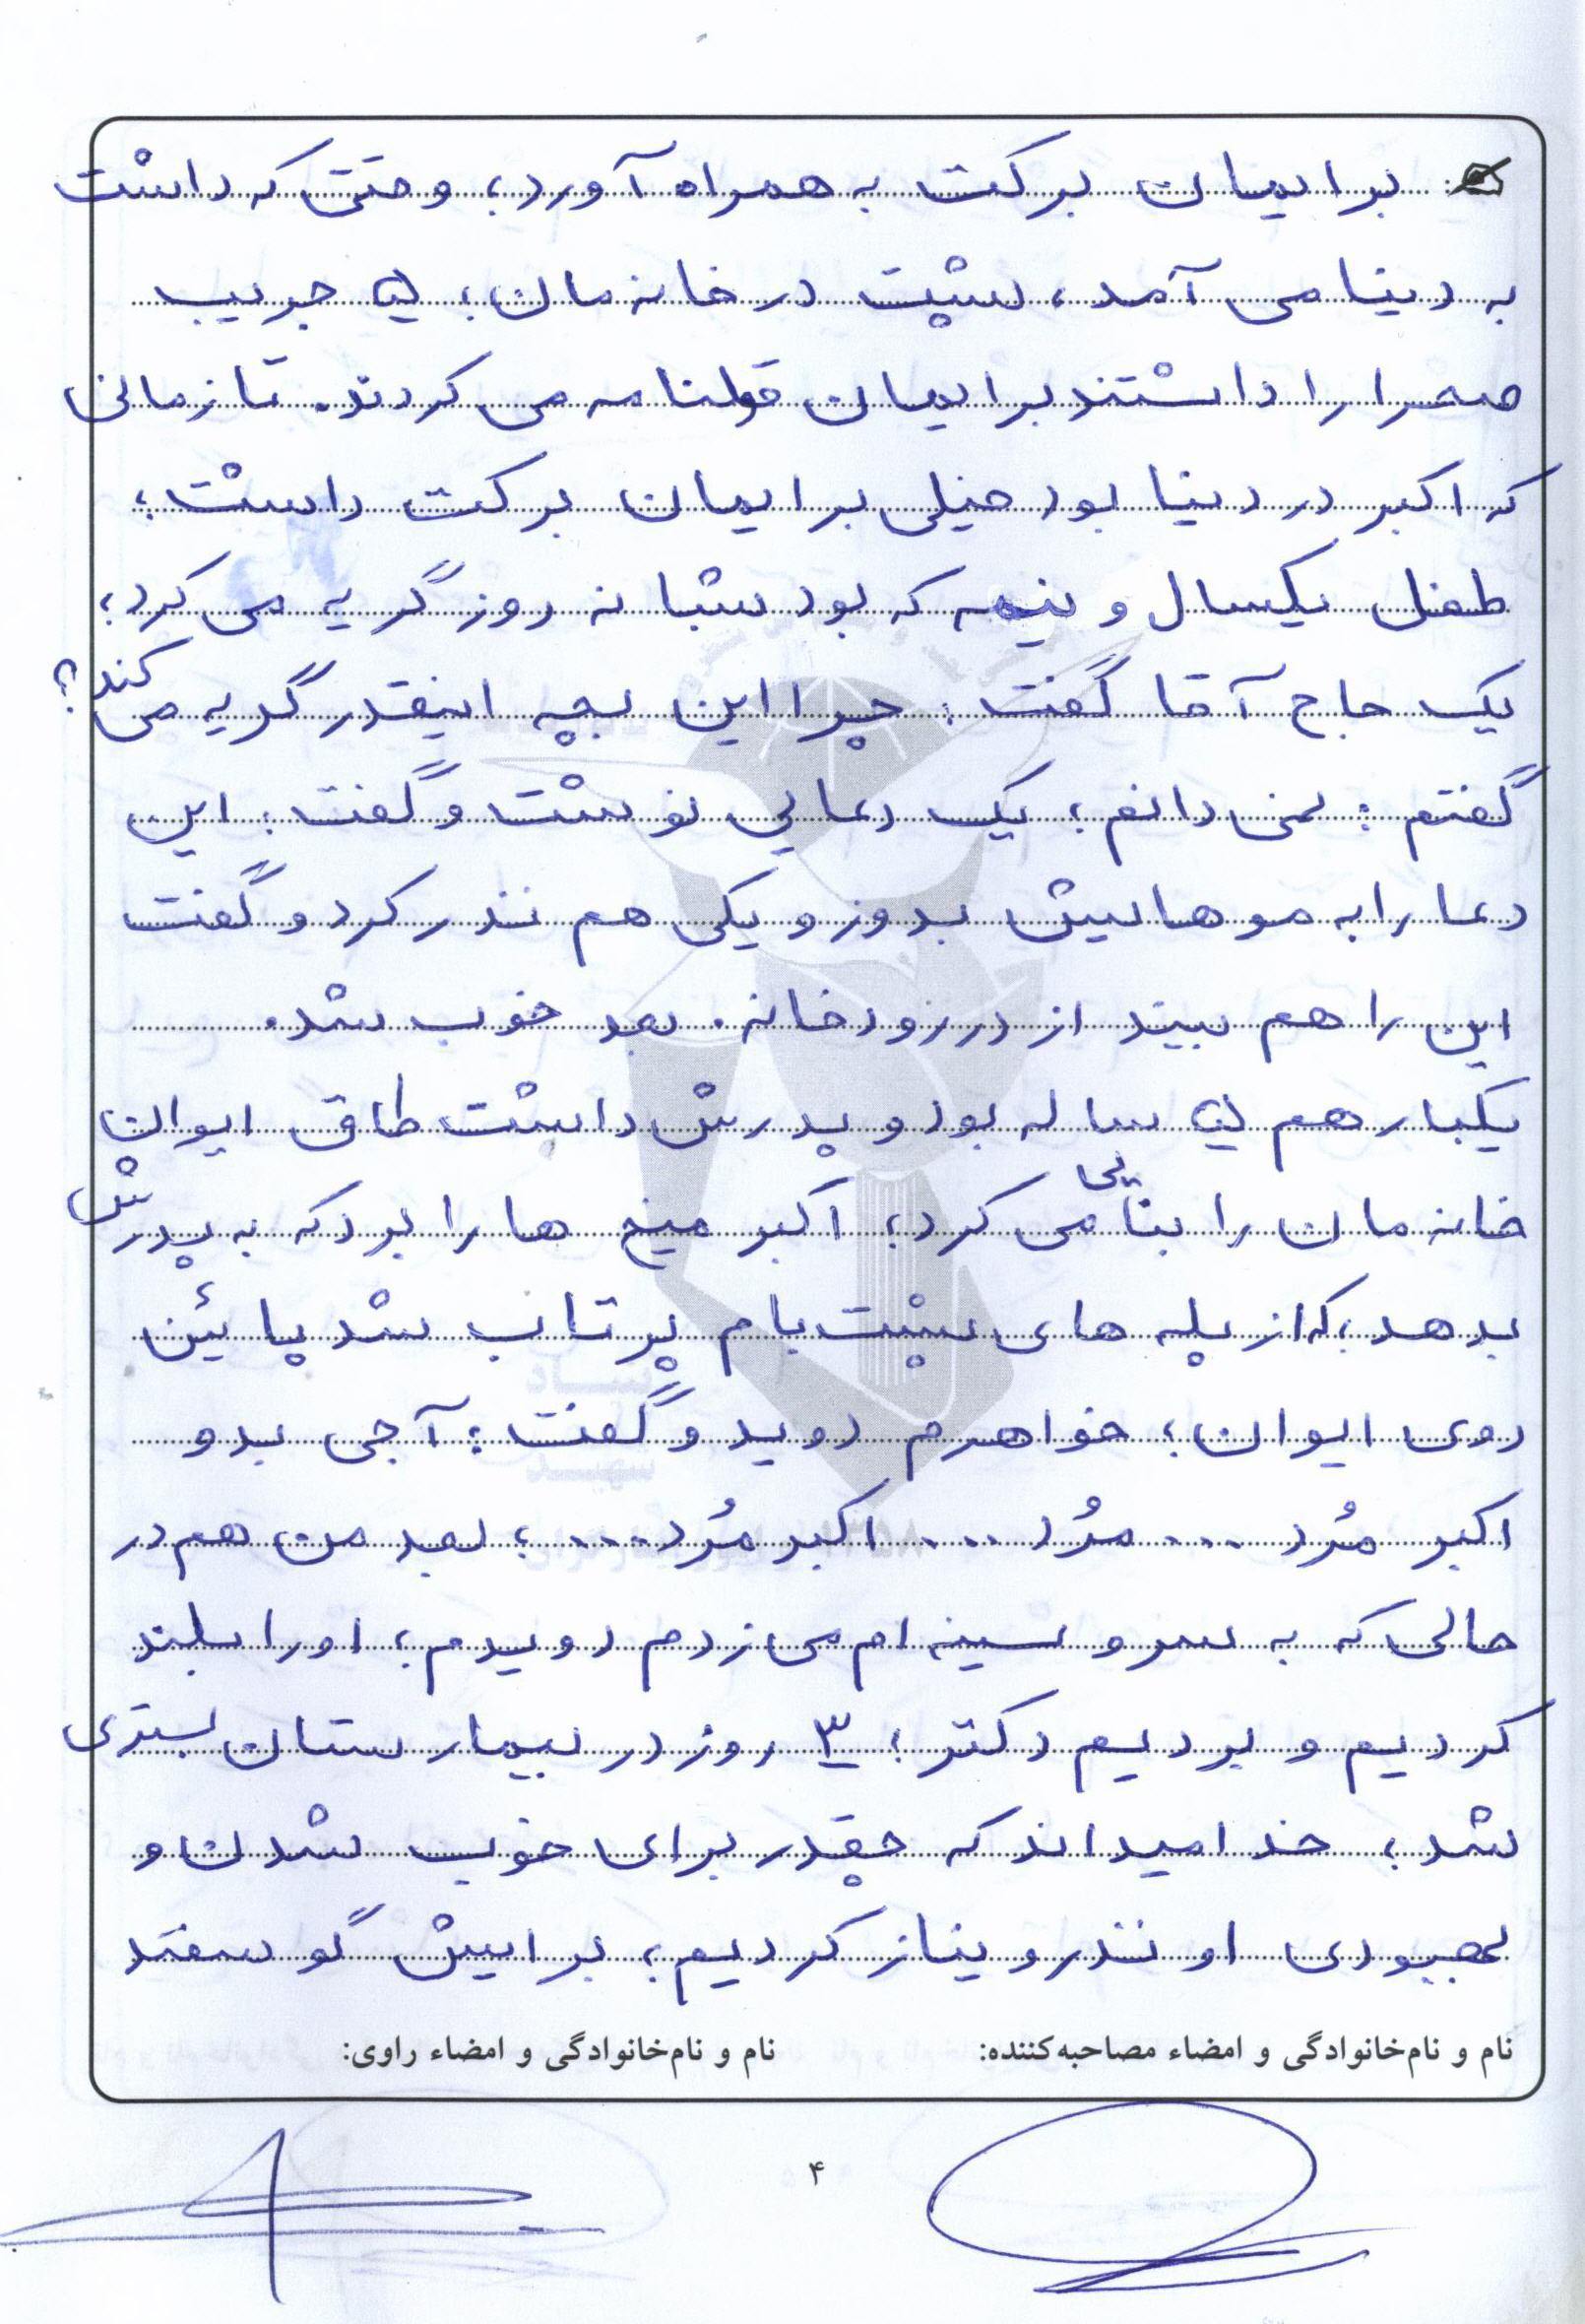 برایمان برکت به همراه آورد؛ وقتی که داشت
به دنیا می آمد، پشت در خانه مان؛ ۵ جریب
صحرا را داشتند برایمان قولنامه می کردند. تا زمانی
که اکبر در دنیا بود خیلی برایمان برکت داشت؛
طفل یکسال و نیمه که بود شبانه روز گریه می کرد؛
یک حاج آقا گفت: چرا این بچه اینقدر گریه می کند؟
گفتم: نمی دانم؛ یک دعایی نوشت و گفت: این
دعا را به موهایش بدوز و یکی هم نذر کرد و گفت
این را هم ببند از در رودخانه. بعد خوب شد.
یکبار هم ۵ ساله بود و پدرش داشت طاق ایوان
خانه مان را بنایی می کرد؛ اکبر میخ ها را برد که به پدرش
بدهد؛ که از پله های پشت بام پرتاب شد پائین
روی ایوان؛ خواهرم دوید و گفت: آجی بدو
اکبر مُرد .... مُرد .... اکبر مُرد....؛ بعد من هم در
حالی که به سر و سینه ام می زدم دویدم؛ او را بلند
کردیم و بردیم دکتر؛ ۳ روز در بیمارستان بستری
شد؛ خدا میداند که چقدر برای خوب شدن و
بهبودی او نذر و نیاز کردیم؛ برایش گوسفند
نام و نام‌خانوادگی و امضاء مصاحبه‌کننده: نام و نام‌خانوادگی و امضاء راوی:
۴